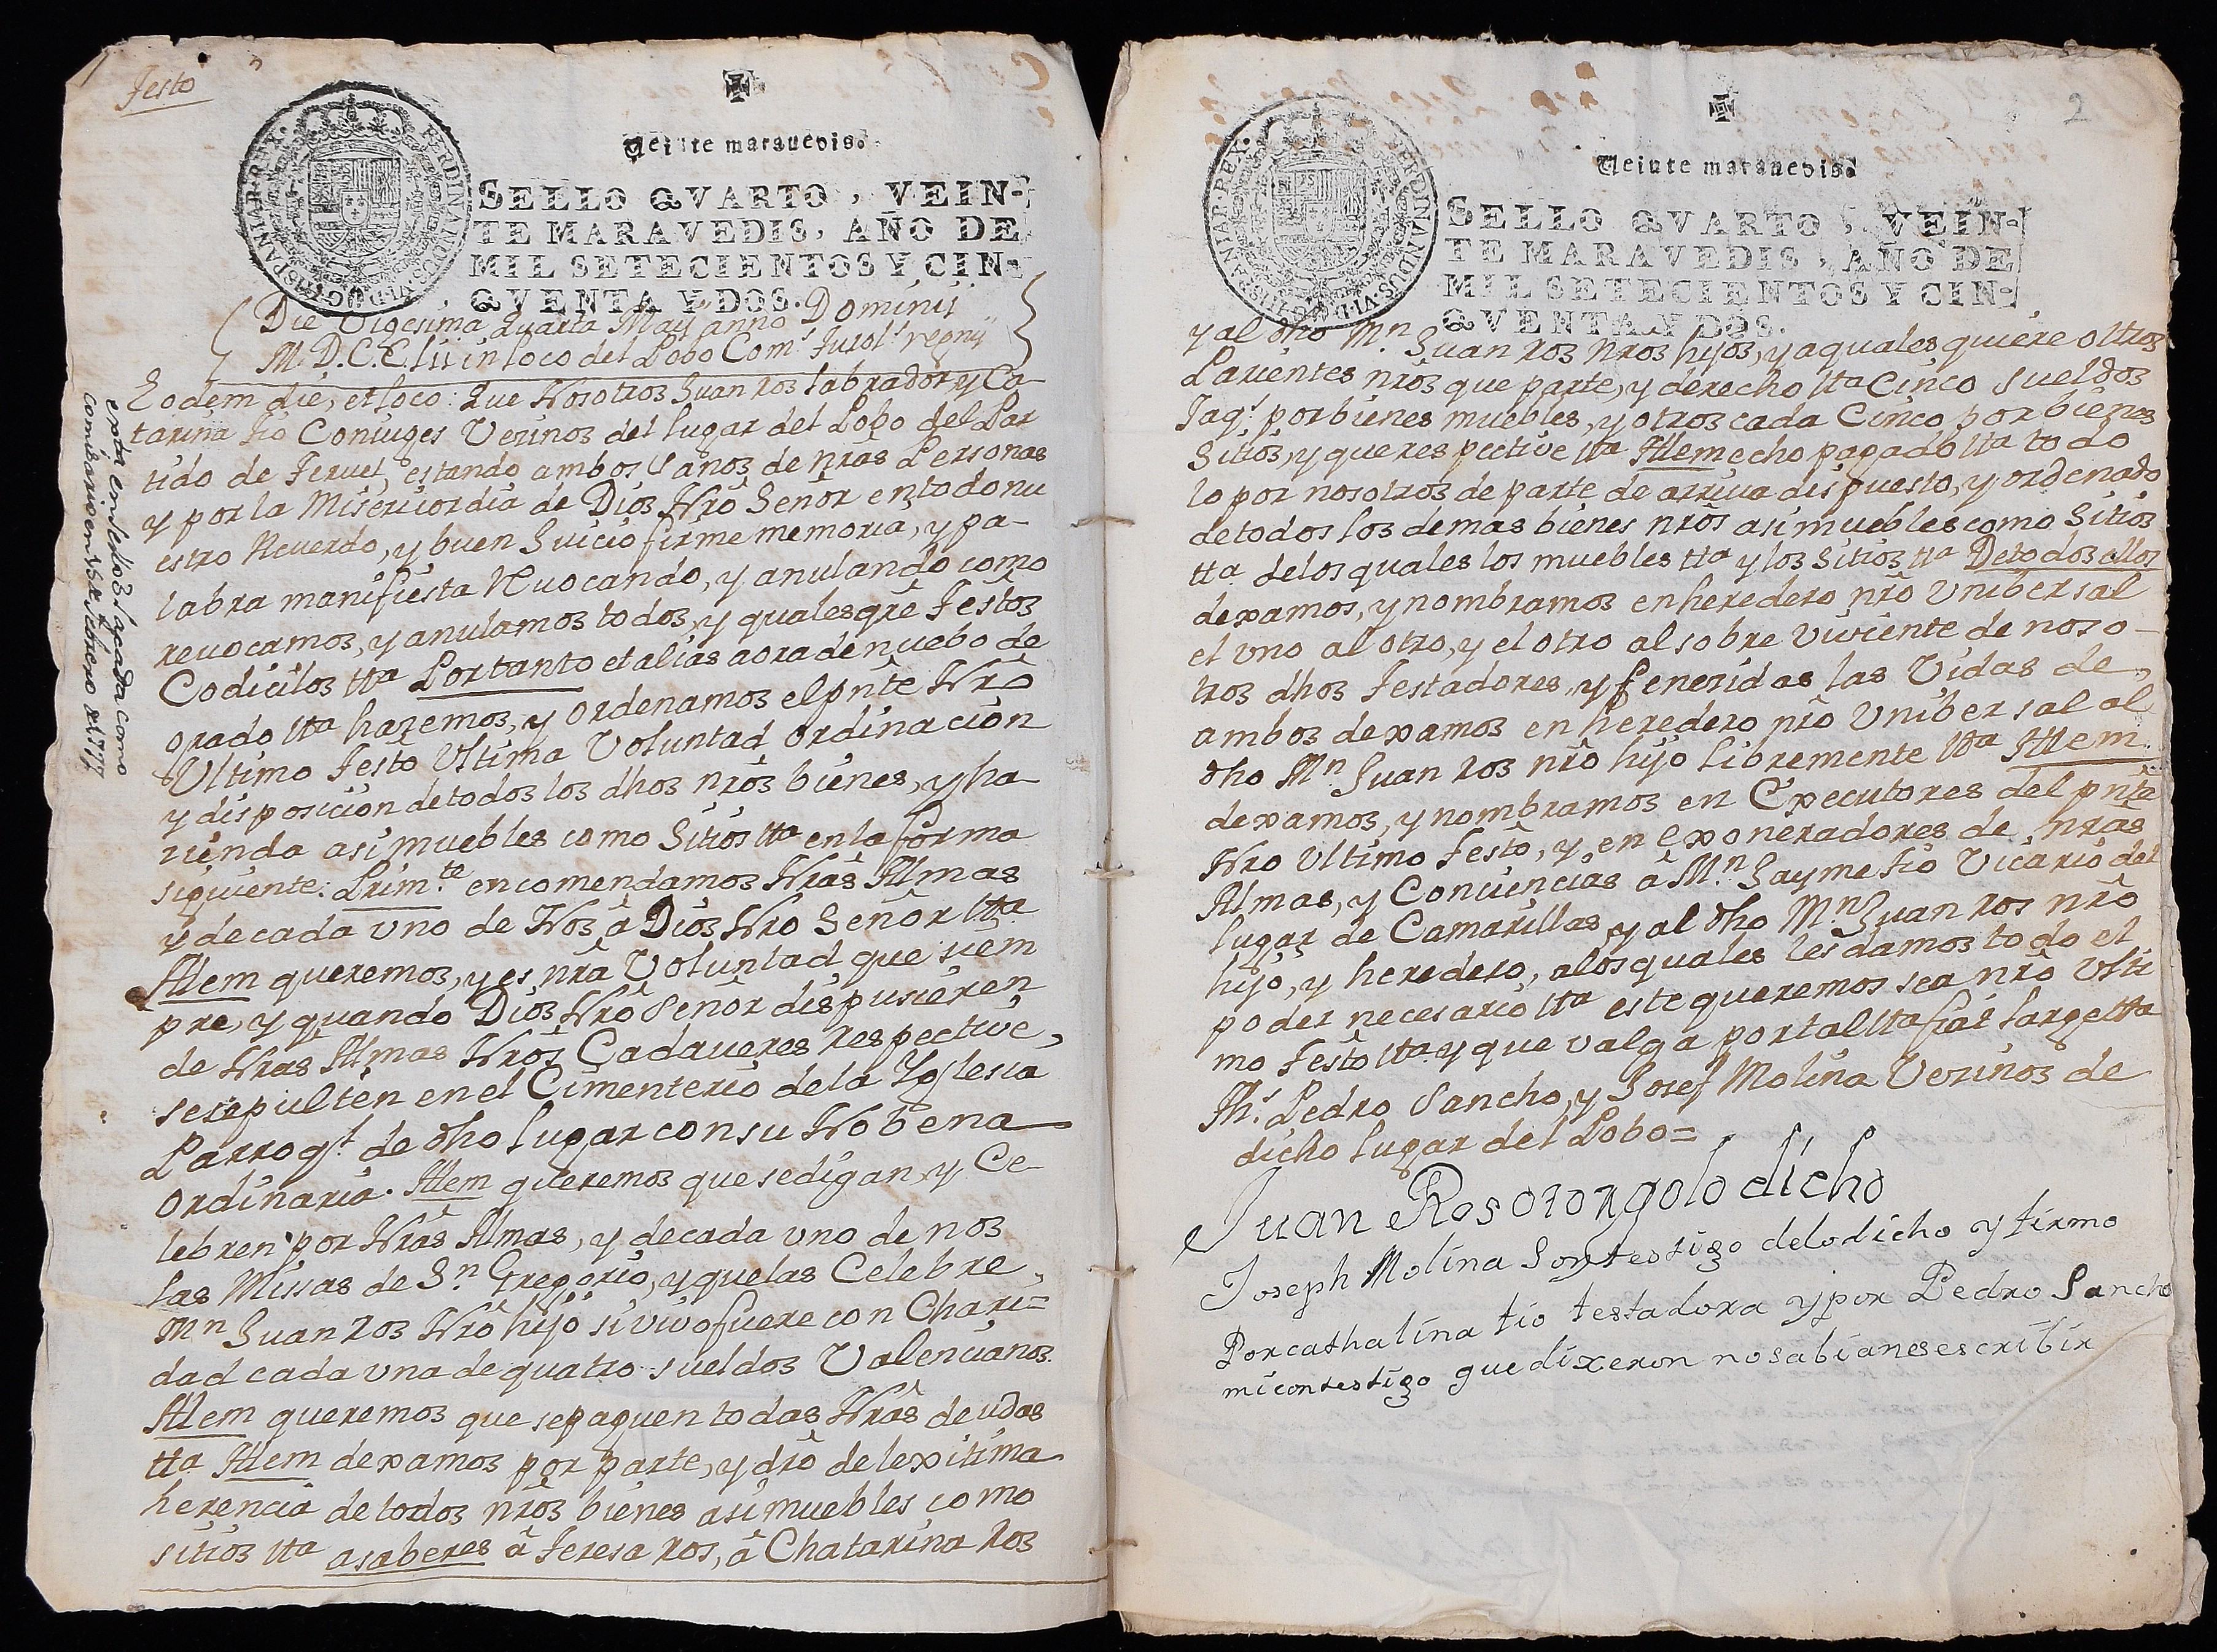 Testo
Veinte maravedis.
FERDINANDUS.VI.D.G.HISPANIAR.REX.
SELLO QVARTO, VEIN-
TE MARAVEDIS, AÑO DE
MIL SETECIENTOS Y CIN-
QVENTA Y DOS.
Die Vigesima quarta May anno Dominij
M.D.C.C.lii in loco del Pobo Com.s Turol.s regnij
Eodem die, et loco: Que Nosotros Juan Ros labrador y Ca-
tarina tio Coniuges Vecinos del lugar del Pobo del Par
tido de Teruel, estando ambos Sanos de nrâs Personas
y por la Misericordia de Dios Nrô Señor en todo nu
estro Acuerdo, y buen Juicio firme memoria, y pa-
labra manifiesta Revocando, y anulando como
revocamos, y anulamos todos, y qualesqrê Testôs
Codicilos tta Portanto et alias aora de nuebo de
grado tta hazemos, y ordenamos el pntê Nrô
Ultimo Testô Ultima Voluntad ordinacion
y disposicion de todos los dhos nrôs bienes, y ha
zienda asi muebles como Sitios tta en la forma
siguiente: Prim.te encomendamos Nrâs Almas
y de cada uno de Nos â Dios Nrô Señor tta
Attem queremos, y es nrâ Voluntad que siem
pre, y quando Dios Nrô Señor dispusieren
de Nrâs Almas Nrôs Cadaveres respective,
se sepulten en el Cimenterio de la Yglesia
Parroql. de dho lugar con su Nobena
ordinaria. Attem queremos que se digan, y Ce-
lebren por Nrâs Almas, y de cada uno de nos
las Missas de Sn. Gregorio, y que las Celebre,
Mn Juan Ros Nrô hijo si vivo fuere con Chari=
dad cada una de quatro sueldos Valencianos.
Attem queremos que se paguen todas Nrâs deudas
tta Attem dexamos por parte, y drô de lexitima
herencia de todos nrôs bienes asi muebles como
sitios tta asaberes â Teresa Ros, â Chatarina Ros
extta en sello 3º sacada como
comisario en 15 de Febrero de 1777
2
Veinte maravedis.
FERDINANDUS.VI.D.G.HISPANIAR.REX.
SELLO QVARTO, VEIN-
TE MARAVEDIS, AÑO DE
MIL SETECIENTOS Y CIN-
QVENTA Y DOS.
y al dho Mn. Juan Ros nros hijos, y aquales quiere oltros
Parientes nrôs que parte, y derecho tta Cinco Sueldos
Jaqs. por bienes muebles, y otros cada Cinco por bienes
Sitios, y que respective tta Attem echo pagado tta todo
lo por nosotros de parte de arriva dispuesto, y ordenado
de todos los demas bienes nrôs asi muebles como Sitios
tta. delos quales los muebles tta y los Sitios tta De todos ellos
dexamos, y nombramos en heredero nrô Unibersal
el uno al otro, y el otro al sobre viviente de noso-
tros dhos Testadores, y feneridas las Vidas de,
ambos dexamos en heredero nrô Unibersal al
dho Mn. Juan Ros nrô hijo libremente tta Attem
dexamos, y nombramos en Executores del pnte
Nro Ultimo Testô, y en exoneradores de nras
Almas, y Conciencias â Mn. Jayme tio Vicario del
lugar de Camarillas, y al dho Mn Juan Ros nrô
hijo, y heredero, alos quales les damos todo el
poder necesario tta este queremos sea nrô Ulti
mo Testô tta y que valga por tal tta fiat large tta
Ths. Pedro Sancho, y Josef Molina Vezinos de
dicho lugar del Pobo=
Juan Ros otorgo lo dicho
Joseph Molina Soy testigo de lo dicho y firmo
Por cathalina tio testadora y por Pedro Sancho
mi contestigo que dixeron no sabian es escribir